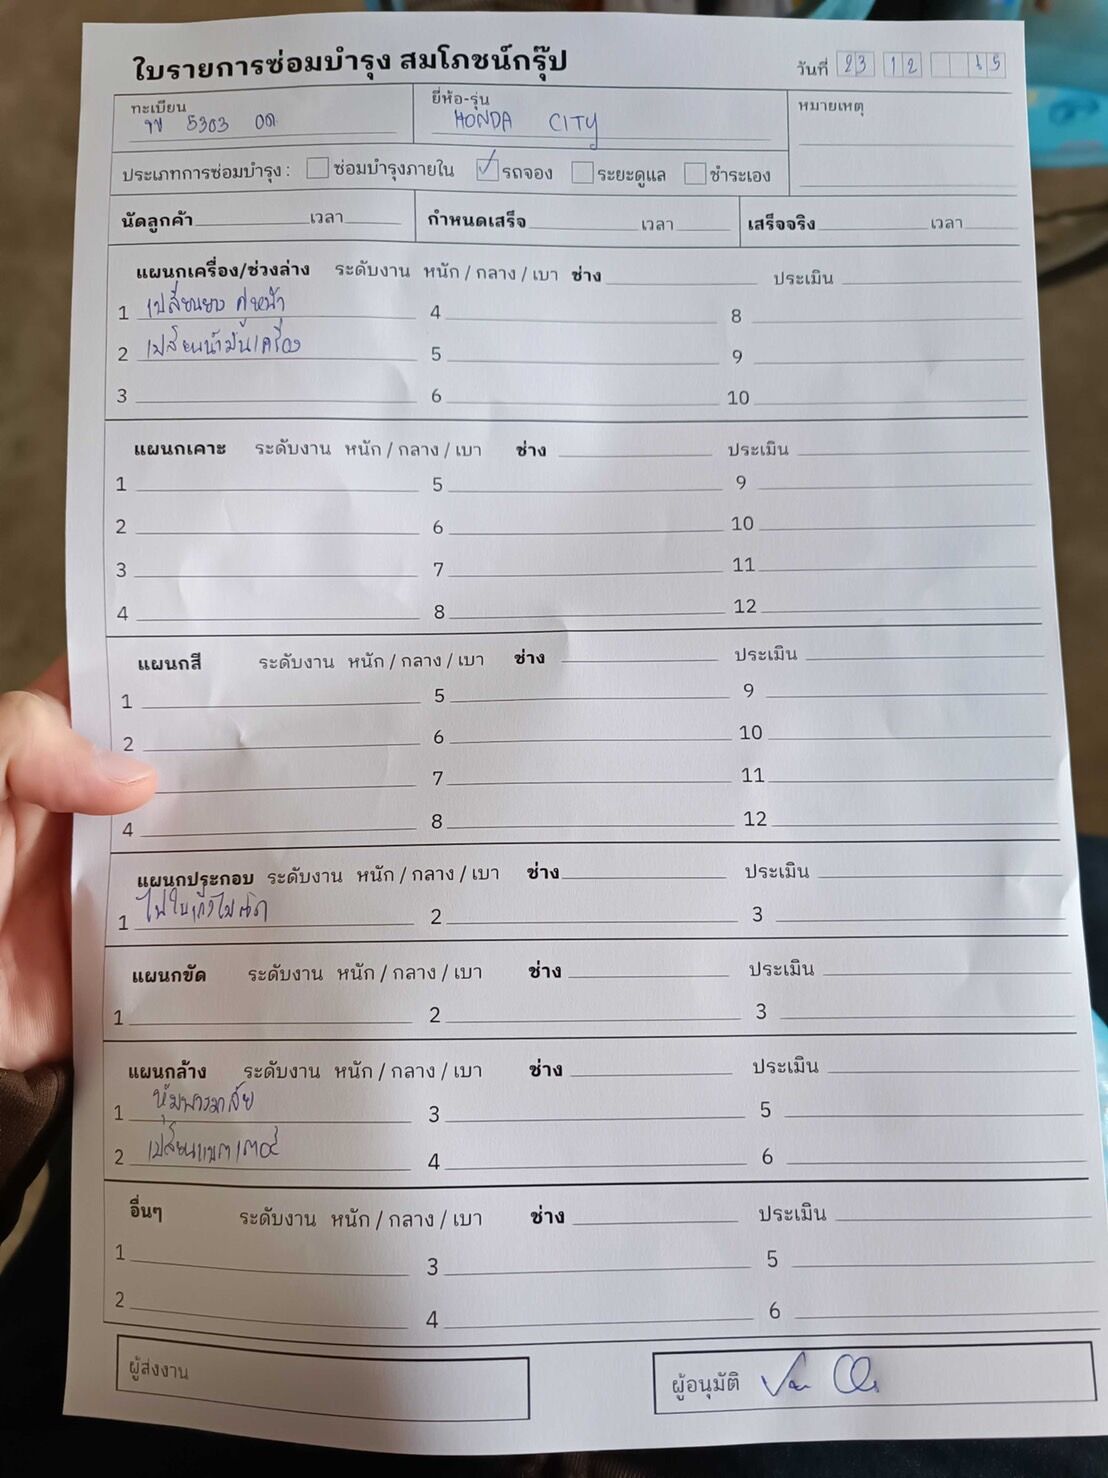 ใบรายการซ่อมบำรุง สมโภชน์กรุ๊ป
วันที่ 23 12 15
ทะเบียน
5303
ยี่ห้อ-รุ่น
HONDA CITY
หมายเหตุ
ประเภทการซ่อมบำรุง : ซ่อมบำรุงภายใน ✓ รถจอง ระยะดูแล ชำระเอง
นัดลูกค้า เวลา กำหนดเสร็จ เวลา เสร็จจริง เวลา
แผนกเครื่อง/ช่วงล่าง ระดับงาน หนัก / กลาง / เบา ช่าง ประเมิน
1 เปลี่ยนยาง คู่หน้า 4 8
2 เปลี่ยนน้ำมันเครื่อง 5 9
3 6 10
แผนกเคาะ ระดับงาน หนัก / กลาง / เบา ช่าง ประเมิน
1 5 9
2 6 10
3 7 11
4 8 12
แผนกสี ระดับงาน หนัก / กลาง / เบา ช่าง ประเมิน
1 5 9
2 6 10
7 11
4 8 12
แผนกประกอบ ระดับงาน หนัก / กลาง / เบา ช่าง ประเมิน
1 2 3
แผนกขัด ระดับงาน หนัก / กลาง / เบา ช่าง ประเมิน
1 2 3
แผนกล้าง ระดับงาน หนัก / กลาง / เบา ช่าง ประเมิน
1 หุ้มพวงมาลัย 3 5
2 เปลี่ยนแบตเตอรี่ 4 6
อื่นๆ ระดับงาน หนัก / กลาง / เบา ช่าง ประเมิน
1 3 5
2 4 6
ผู้ส่งงาน
ผู้อนุมัติ